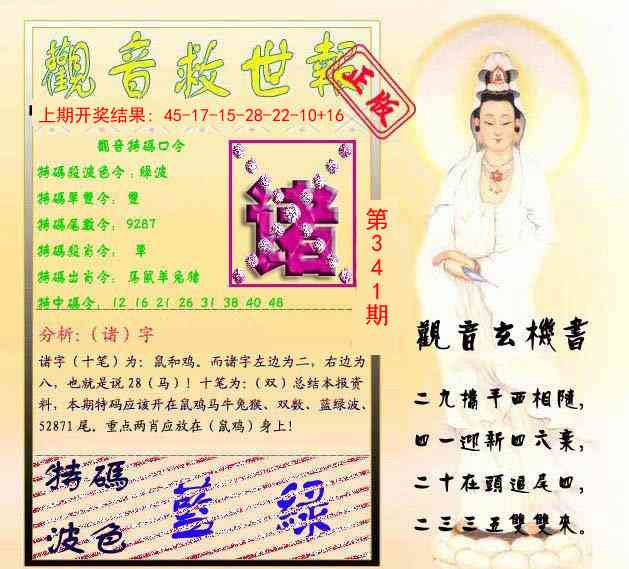 觀音救世報
正版
上期开奖结果：45-17-15-28-22-10+16
觀音特碼口令
特碼段波色令：綠波
特碼單雙令： 雙
特碼尾數令： 9287
特碼段肖令： 單
特碼出肖令： 馬鼠羊兔猪
特中碼令： 12 16 21 26 31 38 40 48
诸
第341期
分析:（诸）字
诸字（十笔）为：鼠和鸡。而诸字左边为二，右边为
八，也就是说28（马）！十笔为：（双）总结本报资
料，本期特码应该开在鼠鸡马牛兔猴、双数、蓝绿波、
52871尾。重点两肖应放在（鼠鸡）身上！
特碼
波色
藍 綠
觀音玄機書
二九擋平西相隨，
四一迎新四六來，
二十在頭追尾四，
二三三五雙雙來。